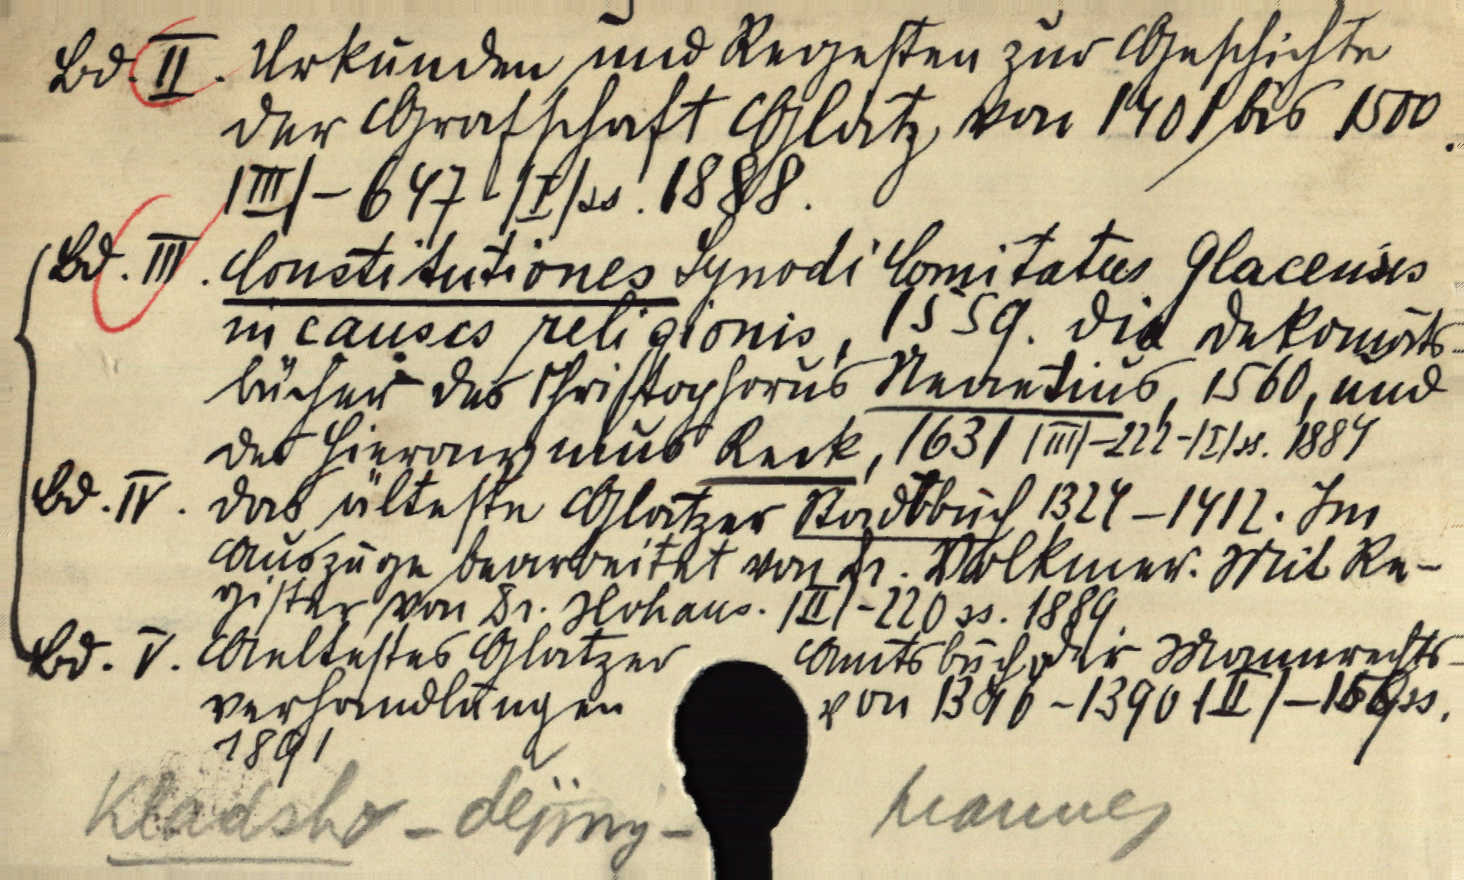 Bd. II. Urkunden und Regesten zur Geschichte
der Grafschaft Glatz von 1401 bis 1500.
/III/-647-/I/ss. 1888.
Bd. III. Constitutiones Synodi Comitatus Glacensis
in causis religionis, 1559. Die Dekanats-
bücher des Christophorus Neaetius, 1560, und
des Hieronymus Keck, 1631 /III/-222-/I/ss. 1884
Bd. IV. Das älteste Glatzer Stadtbuch 1324-1412. Im
Auszuge bearbeitet von Dr. Volkmer. Mit Re-
gister von Dr. Hohaus. /II/-220 ss. 1889.
Bd. V. Aeltestes Glatzer Amtsbuch oder Mannrechts-
verhandlungen von 1346-1390 /II/-156 ss.
1891
Kladsko - dějiny - prameny